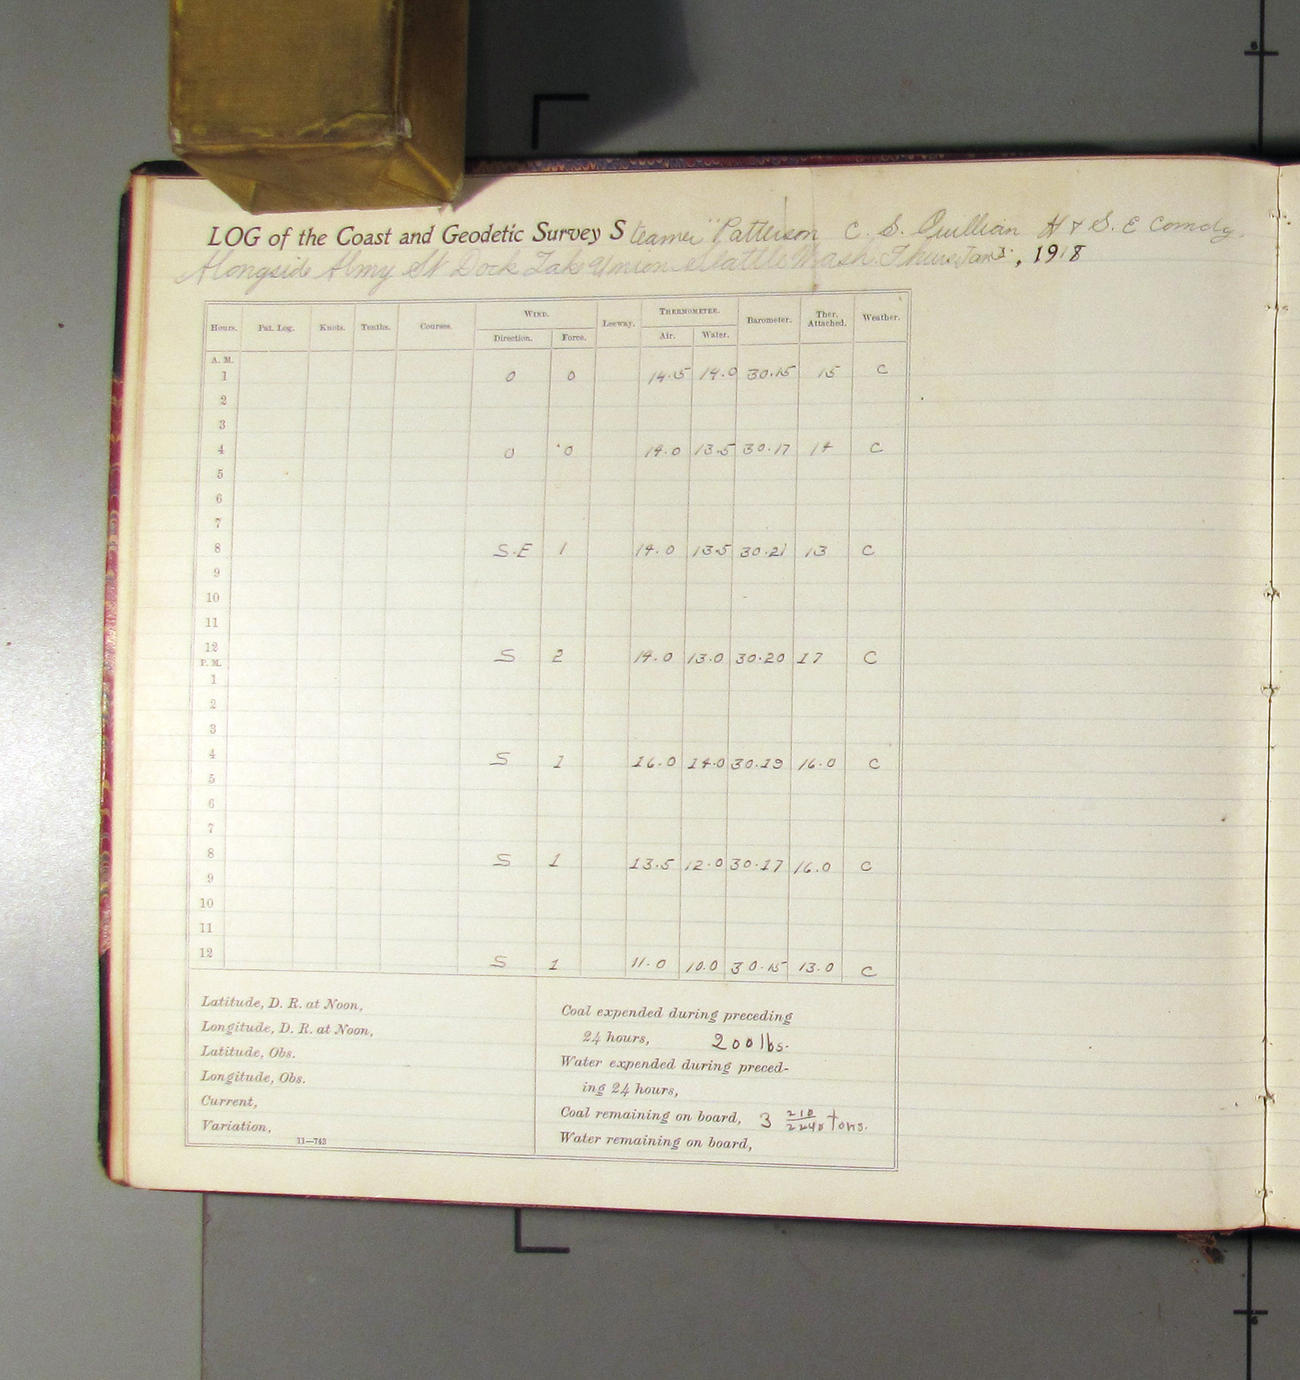 LOG of the Coast and Geodetic Survey Steamer "Patterson C. S. Quillian H & S. E Comdg.
Alongside Almy St Dock Lake Union Seattle Wash. Thurs Jan 3, 1918
Hours. Pat. Log. Knots. Tenths. Courses. WIND. Leeway. THERMOMETER. Barometer. Ther. Attached. Weather.
Direction. Force. Air. Water.
A. M.
1 0 0 14.5 14.0 30.15 15 C
2
3
4 0 0 14.0 13.5 30.17 14 C
5
6
7
8 S.E 1 14.0 13.5 30.21 13 C
9
10
11
12 S 2 14.0 13.0 30.20 17 C
P. M.
1
2
3
4 S 1 16.0 14.0 30.19 16.0 C
5
6
7
8 S 1 13.5 12.0 30.17 16.0 C
9
10
11
12 S 1 11.0 10.0 30.15 13.0 C
Latitude, D. R. at Noon,
Longitude, D. R. at Noon,
Latitude, Obs.
Longitude, Obs.
Current,
Variation,
11—743
Coal expended during preceding
24 hours, 200 lbs.
Water expended during preced-
ing 24 hours,
Coal remaining on board, 3 210/2240 tons.
Water remaining on board,